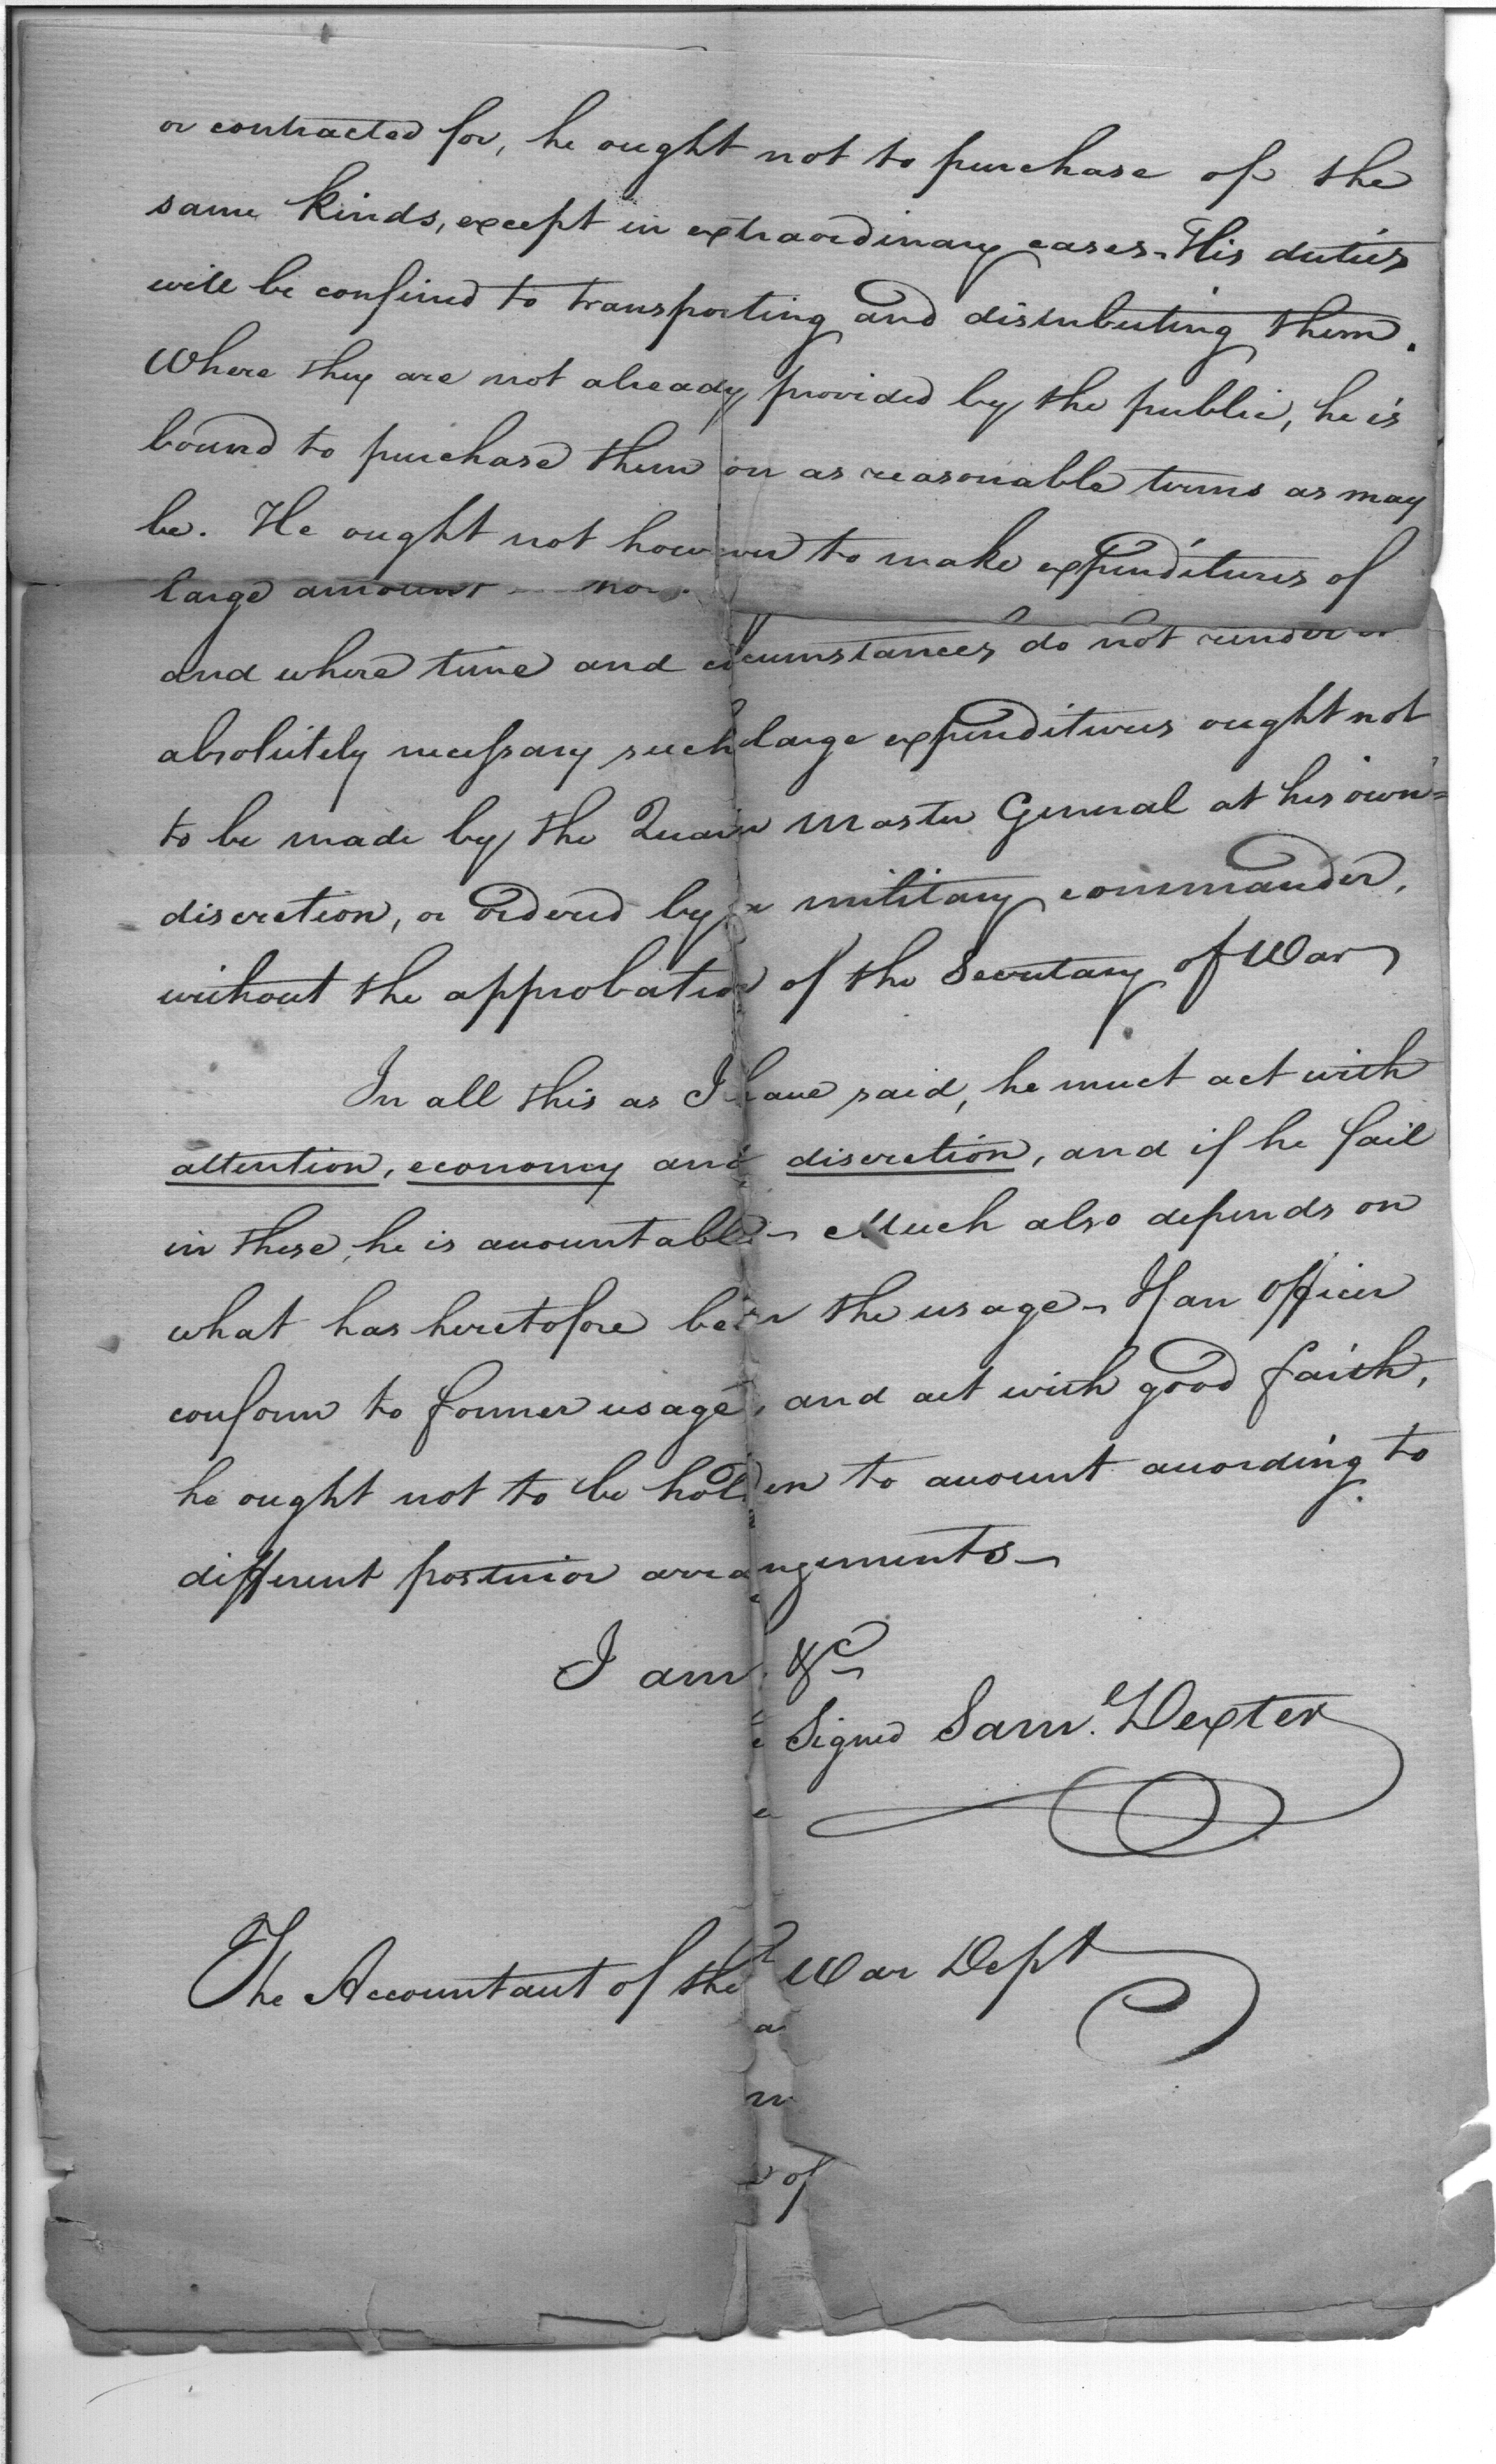 or contracted for, he ought not to purchase of the
same kinds, except in extraordinary cases. His duties
will be confined to transporting and distributing them.
Where they are not already provided by the public, he is
bound to purchase them on as reasonable terms as may
be. He ought not however to make expenditures of
large amount
and where time and circumstances do not render it
absolutely necessary such large expenditures ought not
to be made by the Quarter Master General at his own
discretion, or ordered by a military commander,
without the approbation of the Secretary of War
In all this as I have said, he must act with
attention, economy and discretion, and if he fail
in these, he is accountable - Much also depends on
what has heretofore been the usage - If an Officer
conform to former usage, and act with good faith,
he ought not to be holden to account according to
different posterior arrangements -
I am &c
Signed Saml. Dexter
The Accountant of the War Dept
a
of